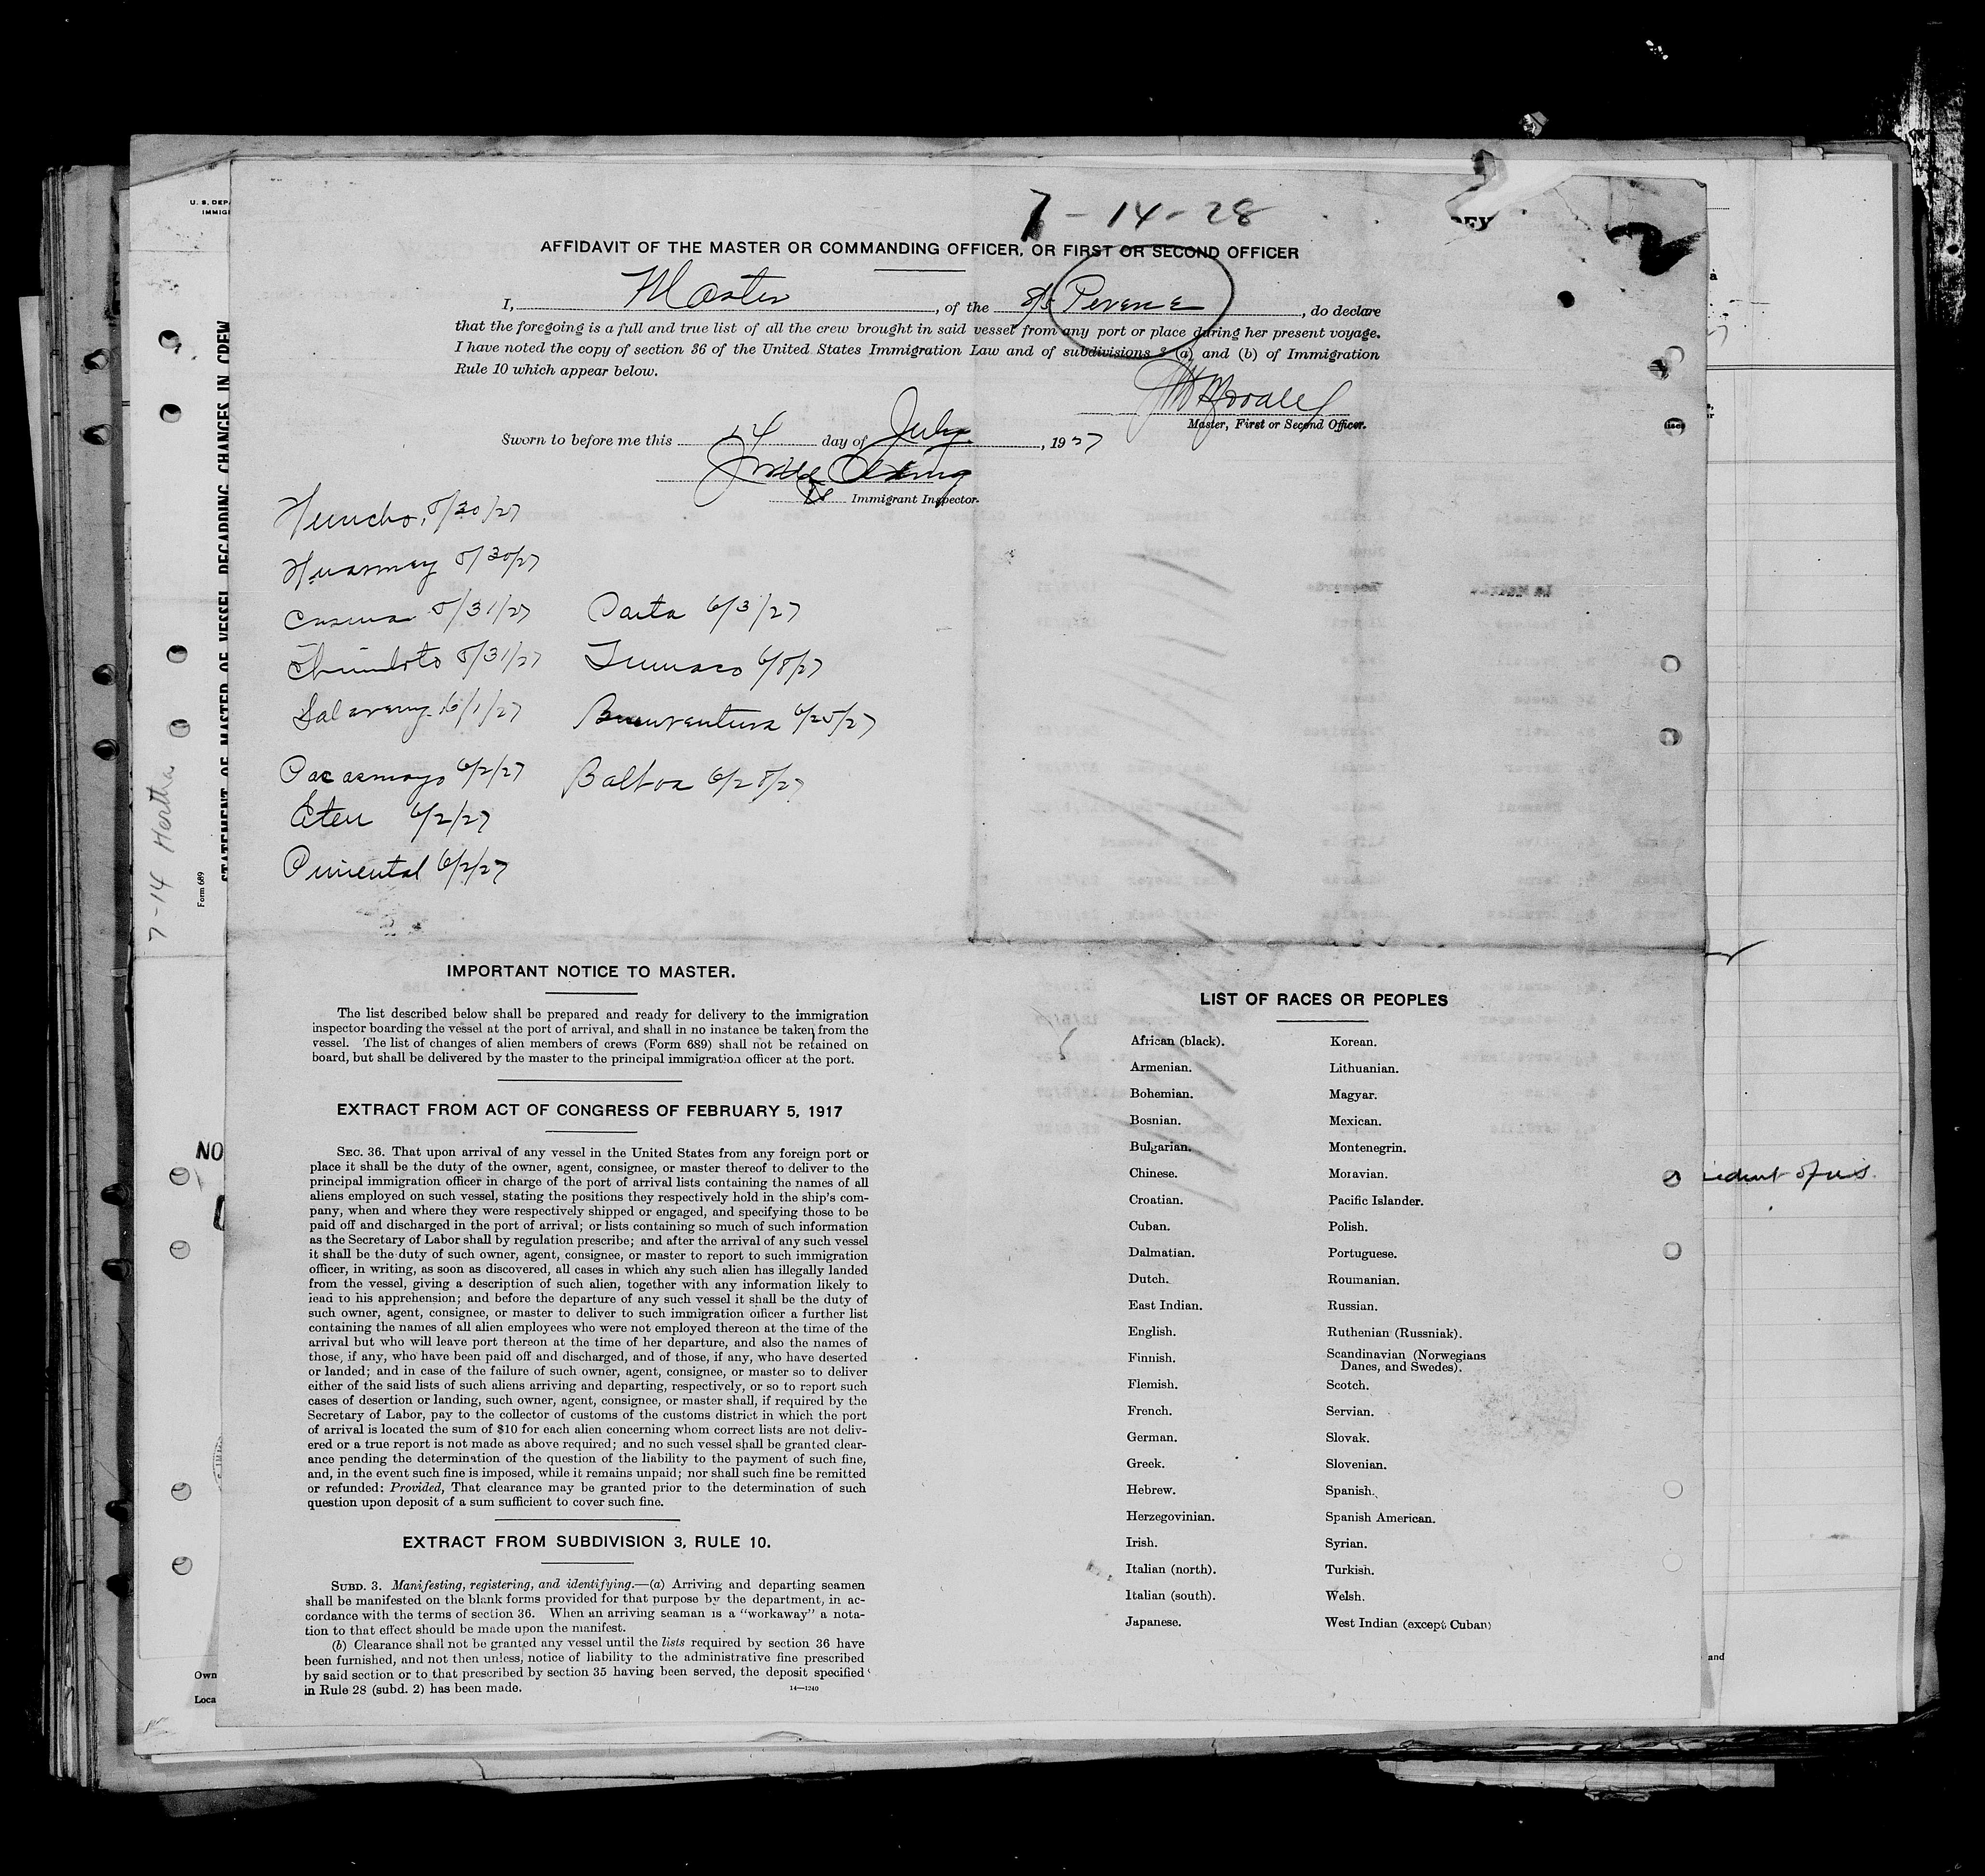 7-14-28
AFFIDAVIT OF THE MASTER OR COMMANDING OFFICER, OR FIRST OR SECOND OFFICER
I, Master, of the S/S Perene, do declare
that the foregoing is a full and true list of all the crew brought in said vessel from any port or place during her present voyage.
I have noted the copy of section 36 of the United States Immigration Law and of subdivisions 3 (a) and (b) of Immigration
Rule 10 which appear below.
Master, First or Second Officer.
Sworn to before me this 14 day of July, 1927
Immigrant Inspector.
Huacho, 5/30/27
Huarmey 5/30/27
Casma 5/31/27 Paita 6/3/27
Chimbote 5/31/27 Tumaco 6/8/27
Salaverry 6/1/27 Buenventura 6/25/27
Pacasmayo 6/2/27 Balboa 6/28/27
Eten 6/2/27
Pimental 6/2/27
IMPORTANT NOTICE TO MASTER.
The list described below shall be prepared and ready for delivery to the immigration
inspector boarding the vessel at the port of arrival, and shall in no instance be taken from the
vessel. The list of changes of alien members of crews (Form 689) shall not be retained on
board, but shall be delivered by the master to the principal immigration officer at the port.
EXTRACT FROM ACT OF CONGRESS OF FEBRUARY 5, 1917
SEC. 36. That upon arrival of any vessel in the United States from any foreign port or
place it shall be the duty of the owner, agent, consignee, or master thereof to deliver to the
principal immigration officer in charge of the port of arrival lists containing the names of all
aliens employed on such vessel, stating the positions they respectively hold in the ship's com-
pany, when and where they were respectively shipped or engaged, and specifying those to be
paid off and discharged in the port of arrival; or lists containing so much of such information
as the Secretary of Labor shall by regulation prescribe; and after the arrival of any such vessel
it shall be the duty of such owner, agent, consignee, or master to report to such immigration
officer, in writing, as soon as discovered, all cases in which any such alien has illegally landed
from the vessel, giving a description of such alien, together with any information likely to
lead to his apprehension; and before the departure of any such vessel it shall be the duty of
such owner, agent, consignee, or master to deliver to such immigration officer a further list
containing the names of all alien employees who were not employed thereon at the time of the
arrival but who will leave port thereon at the time of her departure, and also the names of
those, if any, who have been paid off and discharged, and of those, if any, who have deserted
or landed; and in case of the failure of such owner, agent, consignee, or master so to deliver
either of the said lists of such aliens arriving and departing, respectively, or so to report such
cases of desertion or landing, such owner, agent, consignee, or master shall, if required by the
Secretary of Labor, pay to the collector of customs of the customs district in which the port
of arrival is located the sum of $10 for each alien concerning whom correct lists are not deliv-
ered or a true report is not made as above required; and no such vessel shall be granted clear-
ance pending the determination of the question of the liability to the payment of such fine,
and, in the event such fine is imposed, while it remains unpaid; nor shall such fine be remitted
or refunded: Provided, That clearance may be granted prior to the determination of such
question upon deposit of a sum sufficient to cover such fine.
EXTRACT FROM SUBDIVISION 3, RULE 10.
SUBD. 3. Manifesting, registering, and identifying.—(a) Arriving and departing seamen
shall be manifested on the blank forms provided for that purpose by the department, in ac-
cordance with the terms of section 36. When an arriving seaman is a "workaway" a nota-
tion to that effect should be made upon the manifest.
(b) Clearance shall not be granted any vessel until the lists required by section 36 have
been furnished, and not then unless, notice of liability to the administrative fine prescribed
by said section or to that prescribed by section 35 having been served, the deposit specified
in Rule 28 (subd. 2) has been made.
14—1240
LIST OF RACES OR PEOPLES
African (black). Korean.
Armenian. Lithuanian.
Bohemian. Magyar.
Bosnian. Mexican.
Bulgarian. Montenegrin.
Chinese. Moravian.
Croatian. Pacific Islander.
Cuban. Polish.
Dalmatian. Portuguese.
Dutch. Roumanian.
East Indian. Russian.
English. Ruthenian (Russniak).
Finnish. Scandinavian (Norwegians
Danes, and Swedes).
Flemish. Scotch.
French. Servian.
German. Slovak.
Greek. Slovenian.
Hebrew. Spanish.
Herzegovinian. Spanish American.
Irish. Syrian.
Italian (north). Turkish.
Italian (south). Welsh.
Japanese. West Indian (except Cuban)
U. S. DEPA
IMMIG
STATEMENT OF MASTER OF VESSEL REGARDING CHANGES IN CREW
Form 689
7-14 Hertha
NO
Own
Loca
and